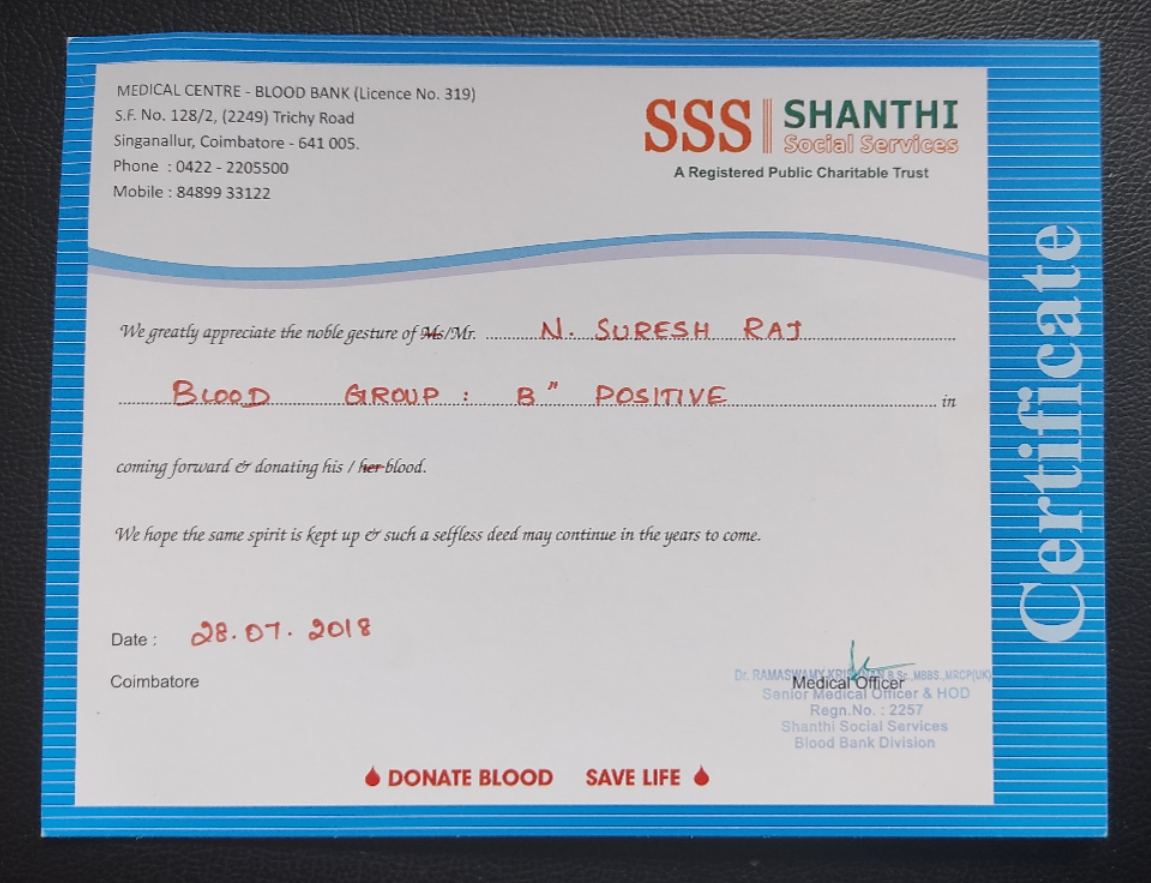 MEDICAL CENTRE - BLOOD BANK (Licence No. 319)
S.F. No. 128/2, (2249) Trichy Road
Singanallur, Coimbatore - 641 005.
Phone : 0422 - 2205500
Mobile : 84899 33122
SSS SHANTHI
Social Services
A Registered Public Charitable Trust
Certificate
We greatly appreciate the noble gesture of Ms/Mr. N. SURESH RAJ
BLOOD GROUP : B" POSITIVE in
coming forward & donating his / her blood.
We hope the same spirit is kept up & such a selfless deed may continue in the years to come.
Date : 28.07.2018
Coimbatore
Dr. RAMASWAMY KRISHNAN B.Sc.,MBBS.,MRCP(UK)
Medical Officer
Senior Medical Officer & HOD
Regn.No. : 2257
Shanthi Social Services
Blood Bank Division
DONATE BLOOD SAVE LIFE